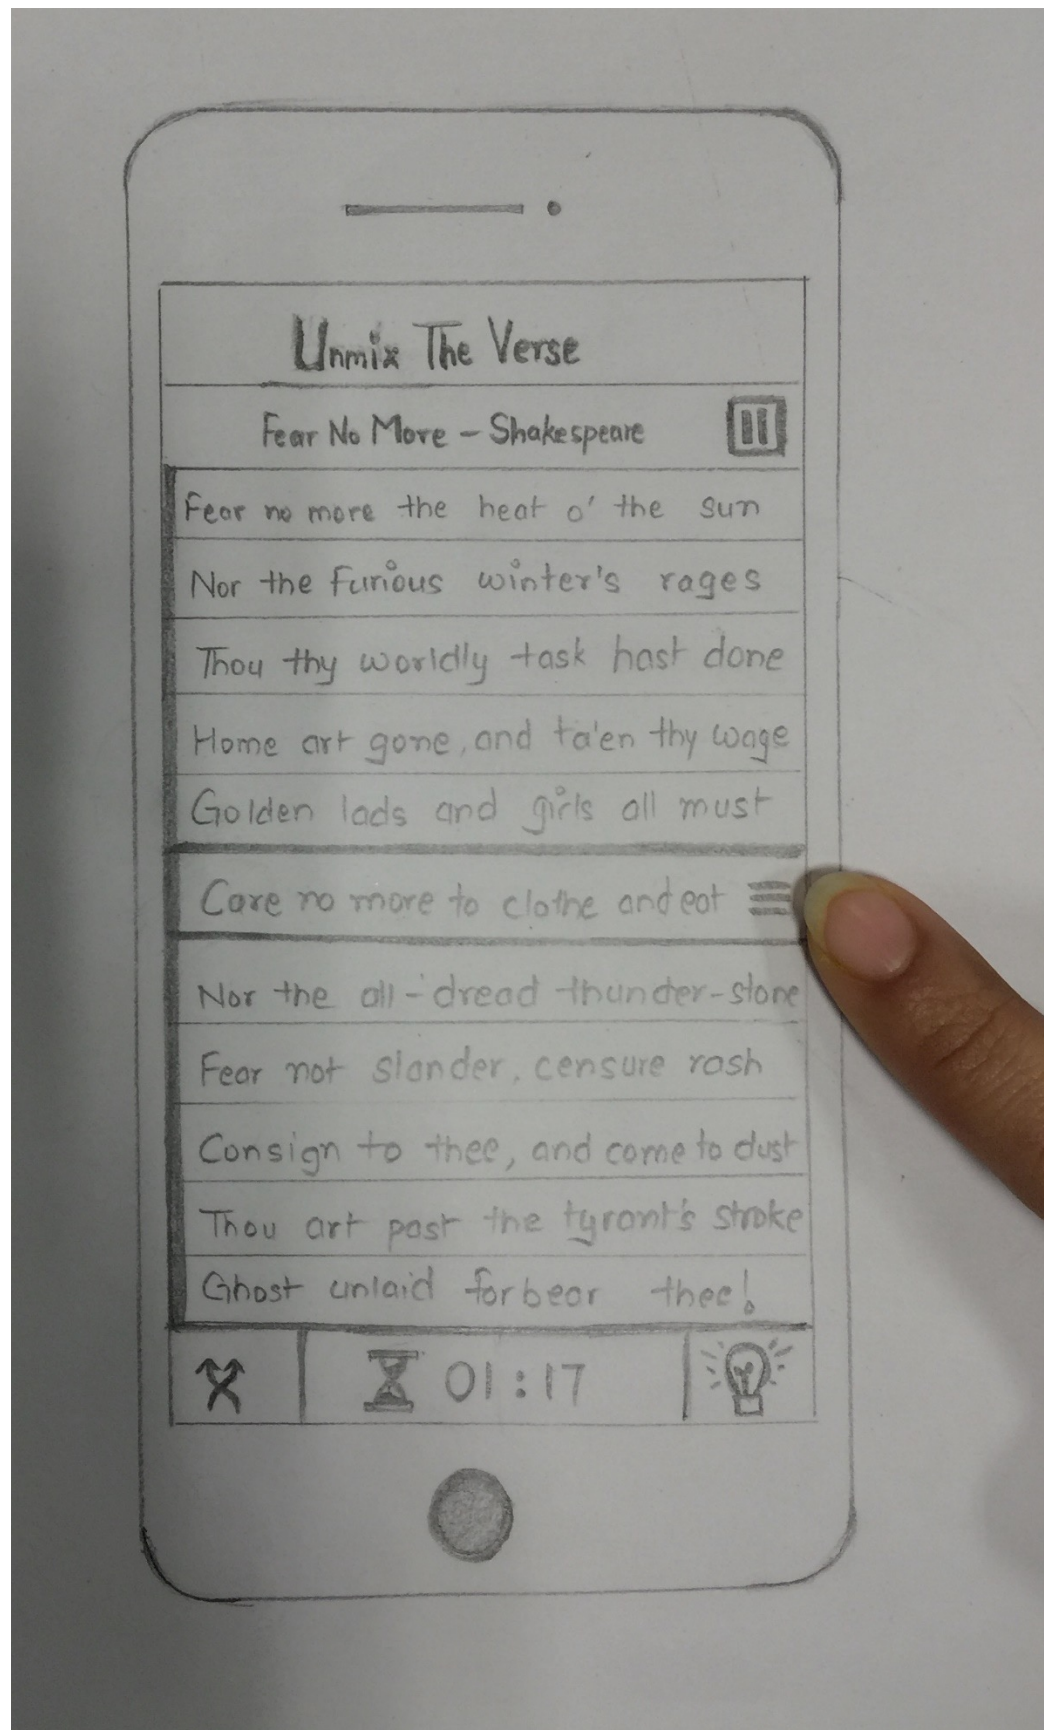 Unmix The Verse
Fear No More - Shakespeare
Fear no more the heat o' the sun
Nor the furious winter's rages
Thou thy worldly task hast done
Home art gone, and ta'en thy wage
Golden lads and girls all must
Care no more to clothe and eat
Nor the all-dread thunder-stone
Fear not slander, censure rash
Consign to thee, and come to dust
Thou art past the tyrant's stroke
Ghost unlaid forbear thee!
01:17